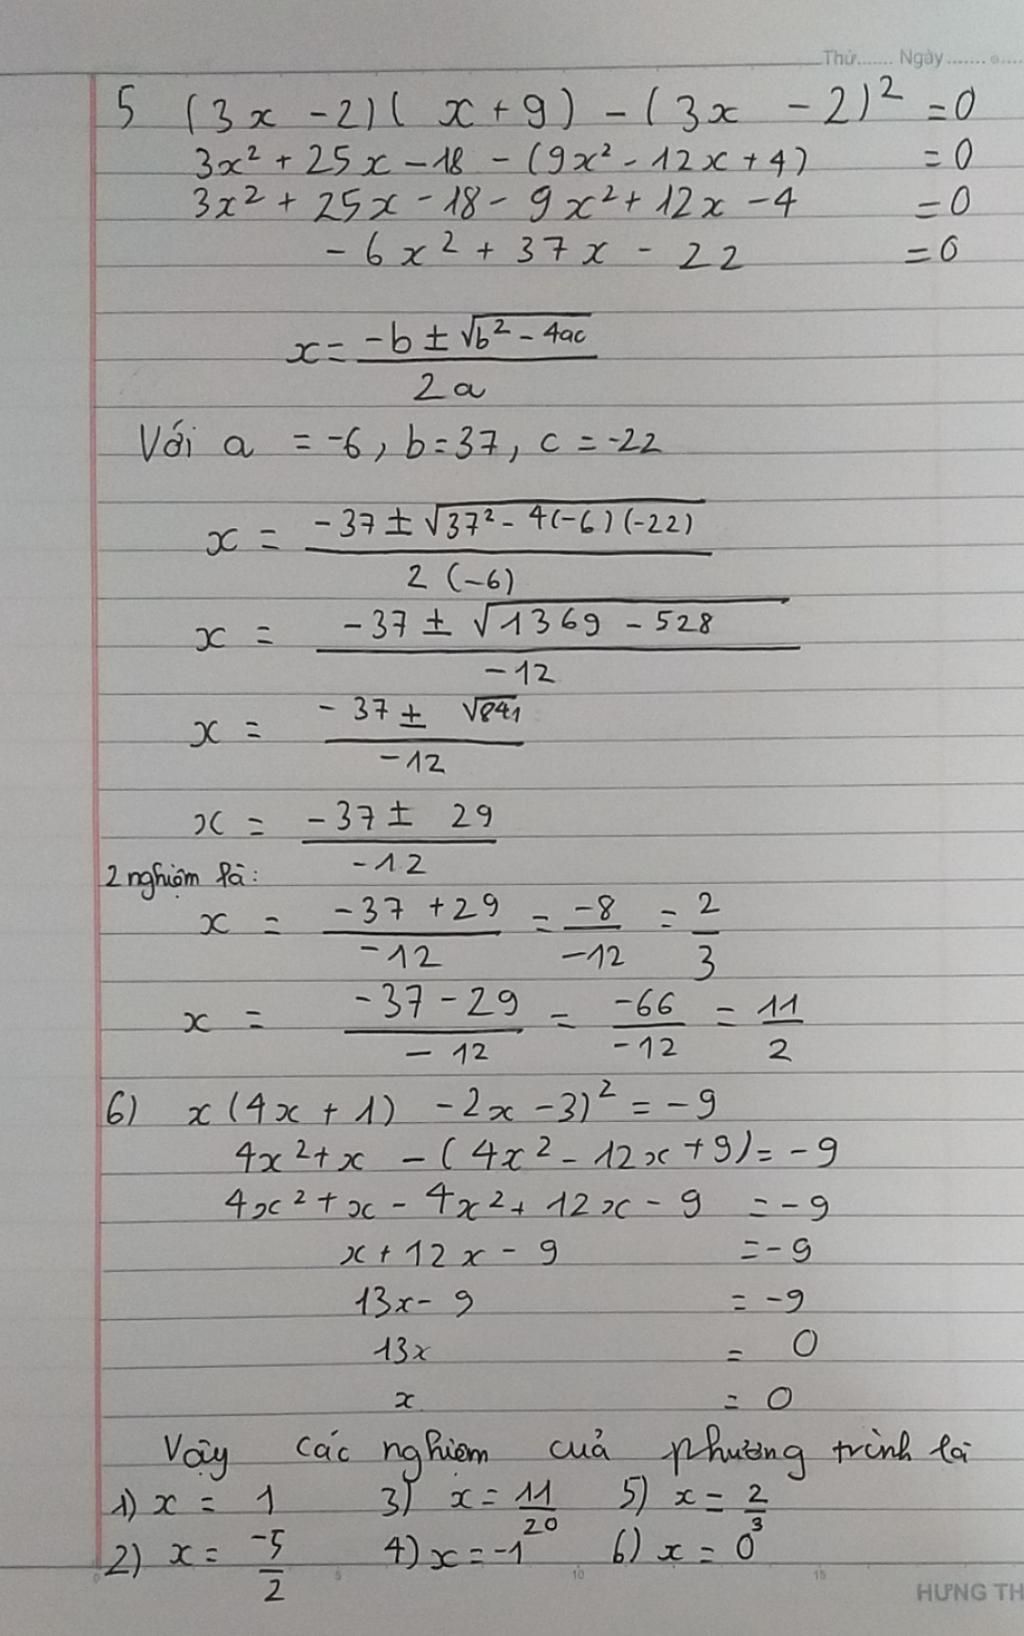 Thứ....... Ngày.......
5 (3x - 2)( x + 9) - (3x - 2)² = 0
3x² + 25x - 18 - (9x² - 12x + 4) = 0
3x² + 25x - 18 - 9x² + 12x - 4 = 0
- 6x² + 37x - 22 = 0
x = \frac{-b ± √(b² - 4ac)}{2a}
Với a = -6, b = 37, c = -22
x = \frac{-37 ± √(37² - 4(-6)(-22))}{2(-6)}
x = \frac{-37 ± √(1369 - 528)}{-12}
x = \frac{-37 ± √841}{-12}
x = \frac{-37 ± 29}{-12}
2 nghiệm là:
x = \frac{-37 + 29}{-12} = \frac{-8}{-12} = \frac{2}{3}
x = \frac{-37 - 29}{-12} = \frac{-66}{-12} = \frac{11}{2}
6) x(4x + 1) - 2x - 3)² = -9
4x² + x - (4x² - 12x + 9) = -9
4x² + x - 4x² + 12x - 9 = -9
x + 12x - 9 = -9
13x - 9 = -9
13x = 0
x = 0
Vậy các nghiệm cuả phương trình là
1) x = 1 3) x = \frac{11}{20} 5) x = \frac{2}{3}
2) x = \frac{-5}{2} 4) x = -1 6) x = 0
0 5 10 15
HƯNG TH